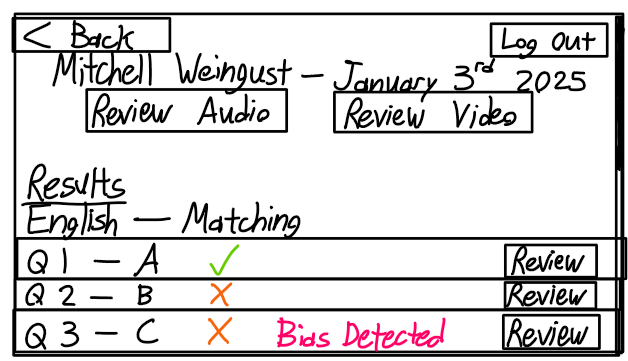 < Back Log Out
Mitchell Weingust – January 3rd 2025
Review Audio Review Video
Results
English – Matching
Q1 – A ✓ Review
Q2 – B X Review
Q3 – C X Bias Detected Review